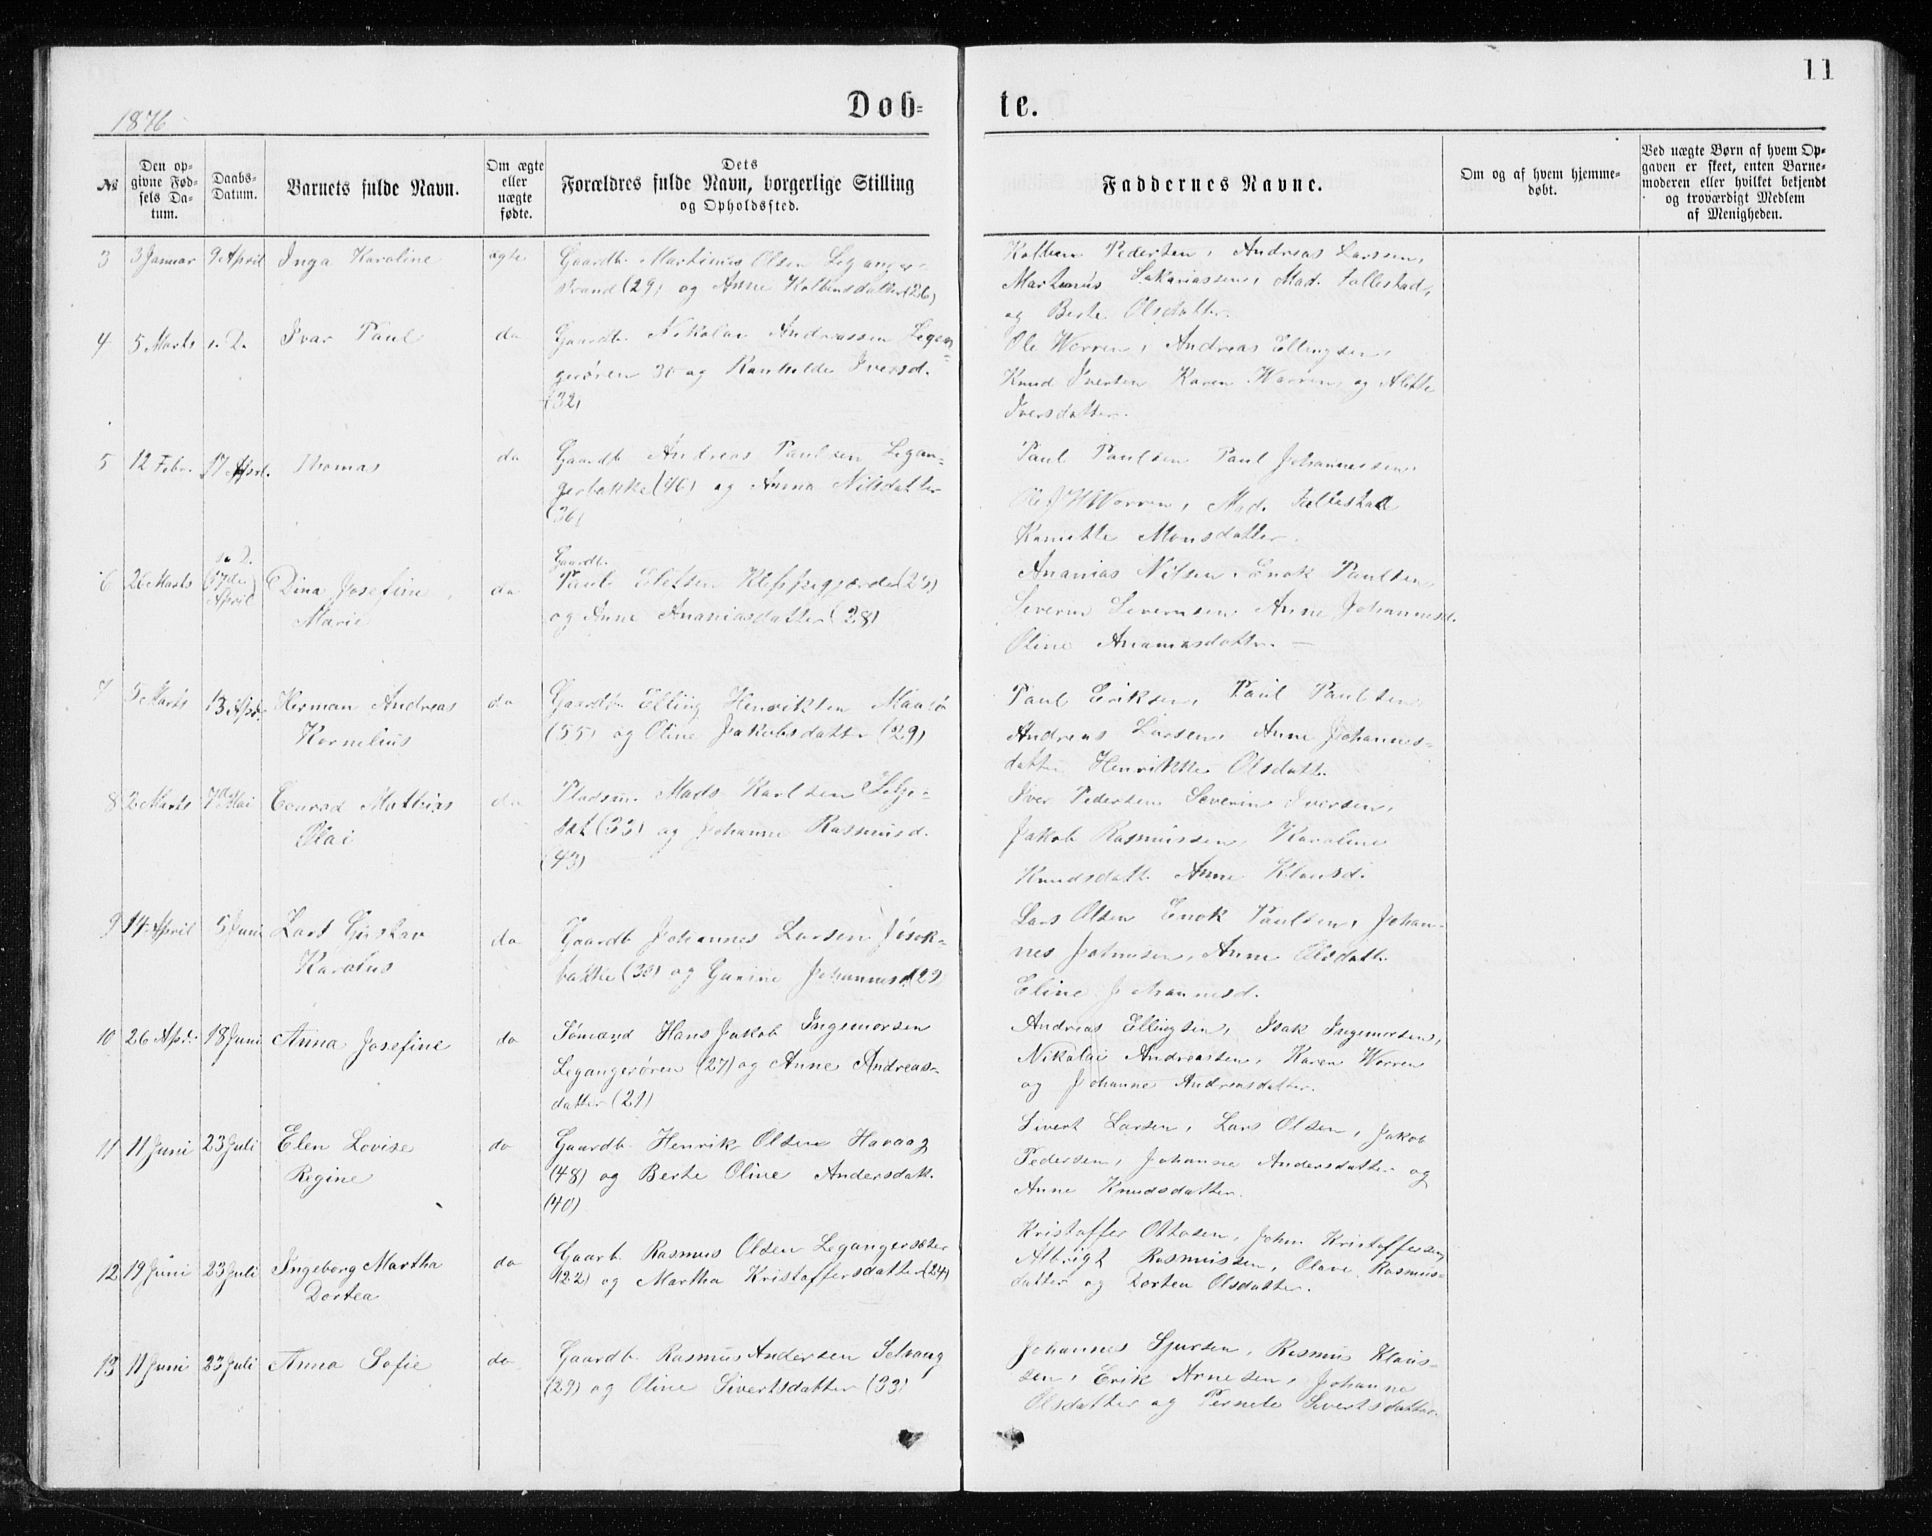 11
Døb-
te.
1876
№
Den op-
givne Fød-
sels Da-
tum.
Daabs-
Datum.
Barnets fulde Navn.
Om ægte
eller
uægte
fødte.
Dets
Forældres fulde Navn, borgerlige Stilling
og Opholdssted.
Faddernes Navne.
Om og af hvem hjemme-
døbt.
Ved uægte Børn af hvem Op-
gaven er skeet, enten Barne-
moderen eller hvilket bekjendt
og troværdigt Medlem
af Menigheden.
3 3 Januar 9 April Inga Karoline ægte
Gaardb. Martinus Olsen Leganger-
strand (29) og Anne Kolbensdatter (26)
Kolben Pedersen, Andreas Larsen,
Martinus Sakariassen, Mad. Fallestad,
og Berte Olsdatter.
4 5 Marts s. D. Ivar Paul do
Gaardb. Nikolai Andreassen Legan-
gerøren 30 og Ranhilde Iversd.
(32)
Ole Worren, Andreas Ellingsen,
Knud Iversen Karen Worren, og Alette
Iversdatter.
5 12 Febr. 17 April. Thomas do
Gaardb. Andreas Paulsen Legan-
gerbakke (46) og Anna Nilsdatter
(36)
Paul Paulsen Paul Johannessen,
Ole J Worren, Mad. Fallestad
Kanutte Monsdatter.
6 26 Marts s. D.
(17de
April) Dina Josefine
Marie do
Gaardb.
Paul Eletsen Kleppegjærde (29)
og Anne Ananiasdatter (28)
Ananias Nilsen, Enok Paulsen
Severin Severinsen Anne Johannesd.
Oline Ananiasdattr. —
7 5 Marts 13 Apr. Herman Andreas
Kornelius do
Gaardb. Elling Henriksen Maalø
(55) og Oline Jakobsdatter (29)
Paul Eriksen, Paul Paulsen
Andreas Larsen, Anne Johannes-
datter Henrikke Olsdatt.
8 2 Marts 7de Mai Conrad Mathias
Olai do
Pladsm. Mads Karlsen Selje-
set (33) og Johanne Rasmusd.
(43)
Iver Pedersen Severin Iversen,
Jakob Rasmussen, Karoline
Knudsdatt. Anne Klausd.
9 14 April 5 Juni Lars Gustav
Karolus do
Gaardb Johannes Larsen Jøsok-
bakke (30) og Gunine Johannesd (29
Lars Olsen Enok Paulsen, Johan-
nes Johnsen, Anne Olsdatt.
Eline Johannesd.
10 26 Apr. 18 Juni Anna Josefine do
Sømand Hans Jakob Ingemorsen
Legangerøren (27) og Anne Andreas-
datter (21)
Andreas Ellingsen, Isak Ingemorsen,
Nikolai Andreassen, Karen Worren
og Johanne Andreasdatter.
11 11 Juni 23 Juli Elen Lovise
Regine do
Gaardb. Henrik Olsen Havaag
(48) og Berte Oline Andersdatt.
(40)
Sivert Larsen, Lars Olsen, Jakob
Pedersen, Johanne Andersdatter og
Anne Knudsdatter.
12 19 Juni 23 Juli Ingeborg Martha
Dortea do
Gaarb. Rasmus Olsen Legangersæter
(22) og Martha Kristoffersdatter (24)
Kristoffer Ottosen, John Kristoffersen,
Albrigt Rasmussen, Olave Rasmus-
datter og Dorten Olsdatter.
13 11 Juni 23 Juli Anna Sofie do
Gaardb. Rasmus Andersen Selvaag
(29) og Oline Sivertsdatter (33)
Johannes Sjursen, Rasmus Klaus-
sen, Erik Arnesen, Johanne
Olsdatter og Pernele Sivertsdatter.